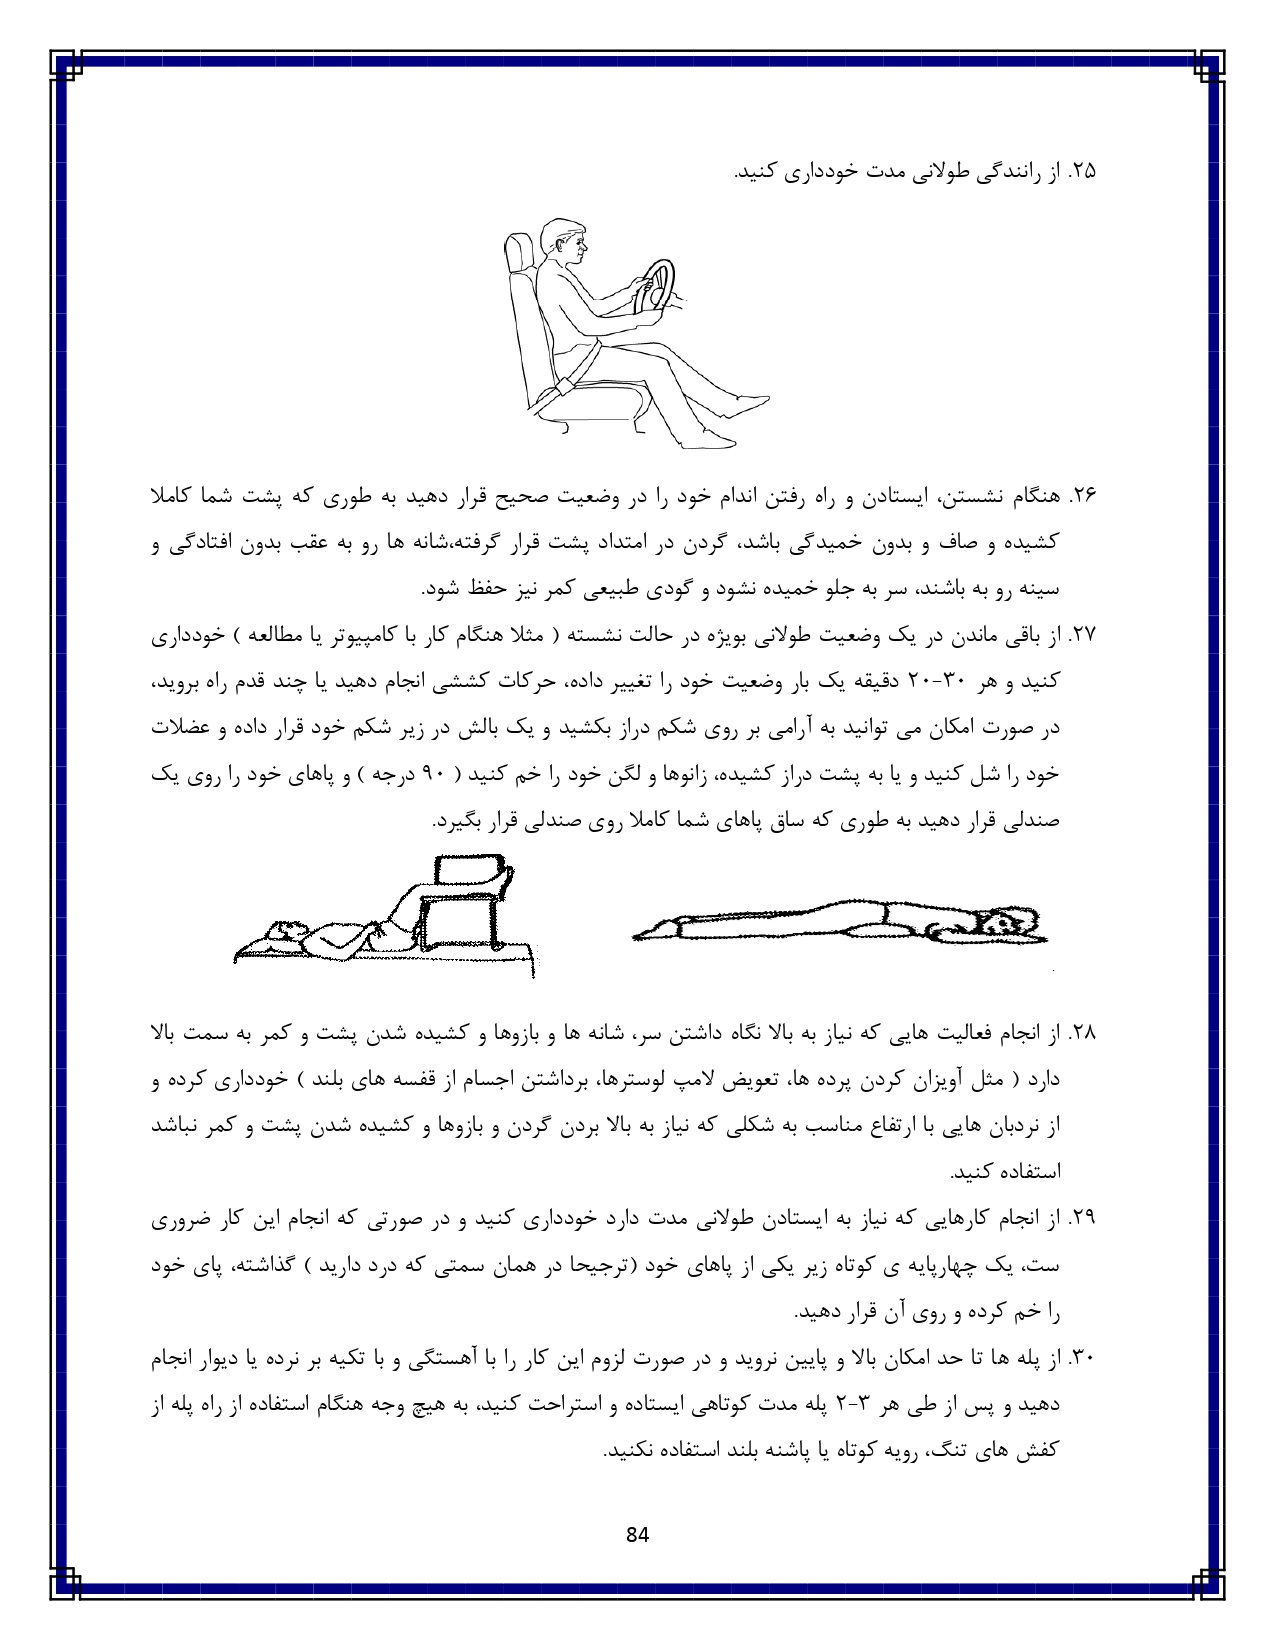 ۲۵. از رانندگی طولانی مدت خودداری کنید.
۲۶. هنگام نشستن، ایستادن و راه رفتن اندام خود را در وضعیت صحیح قرار دهید به طوری که پشت شما کاملا
کشیده و صاف و بدون خمیدگی باشد، گردن در امتداد پشت قرار گرفته،شانه ها رو به عقب بدون افتادگی و
سینه رو به باشند، سر به جلو خمیده نشود و گودی طبیعی کمر نیز حفظ شود.
۲۷. از باقی ماندن در یک وضعیت طولانی بویژه در حالت نشسته ( مثلا هنگام کار با کامپیوتر یا مطالعه ) خودداری
کنید و هر ۳۰-۲۰ دقیقه یک بار وضعیت خود را تغییر داده، حرکات کششی انجام دهید یا چند قدم راه بروید،
در صورت امکان می توانید به آرامی بر روی شکم دراز بکشید و یک بالش در زیر شکم خود قرار داده و عضلات
خود را شل کنید و یا به پشت دراز کشیده، زانوها و لگن خود را خم کنید ( ۹۰ درجه ) و پاهای خود را روی یک
صندلی قرار دهید به طوری که ساق پاهای شما کاملا روی صندلی قرار بگیرد.
۲۸. از انجام فعالیت هایی که نیاز به بالا نگاه داشتن سر، شانه ها و بازوها و کشیده شدن پشت و کمر به سمت بالا
دارد ( مثل آویزان کردن پرده ها، تعویض لامپ لوسترها، برداشتن اجسام از قفسه های بلند ) خودداری کرده و
از نردبان هایی با ارتفاع مناسب به شکلی که نیاز به بالا بردن گردن و بازوها و کشیده شدن پشت و کمر نباشد
استفاده کنید.
۲۹. از انجام کارهایی که نیاز به ایستادن طولانی مدت دارد خودداری کنید و در صورتی که انجام این کار ضروری
ست، یک چهارپایه ی کوتاه زیر یکی از پاهای خود (ترجیحا در همان سمتی که درد دارید ) گذاشته، پای خود
را خم کرده و روی آن قرار دهید.
۳۰. از پله ها تا حد امکان بالا و پایین نروید و در صورت لزوم این کار را با آهستگی و با تکیه بر نرده یا دیوار انجام
دهید و پس از طی هر ۳-۲ پله مدت کوتاهی ایستاده و استراحت کنید، به هیچ وجه هنگام استفاده از راه پله از
کفش های تنگ، رویه کوتاه یا پاشنه بلند استفاده نکنید.
84